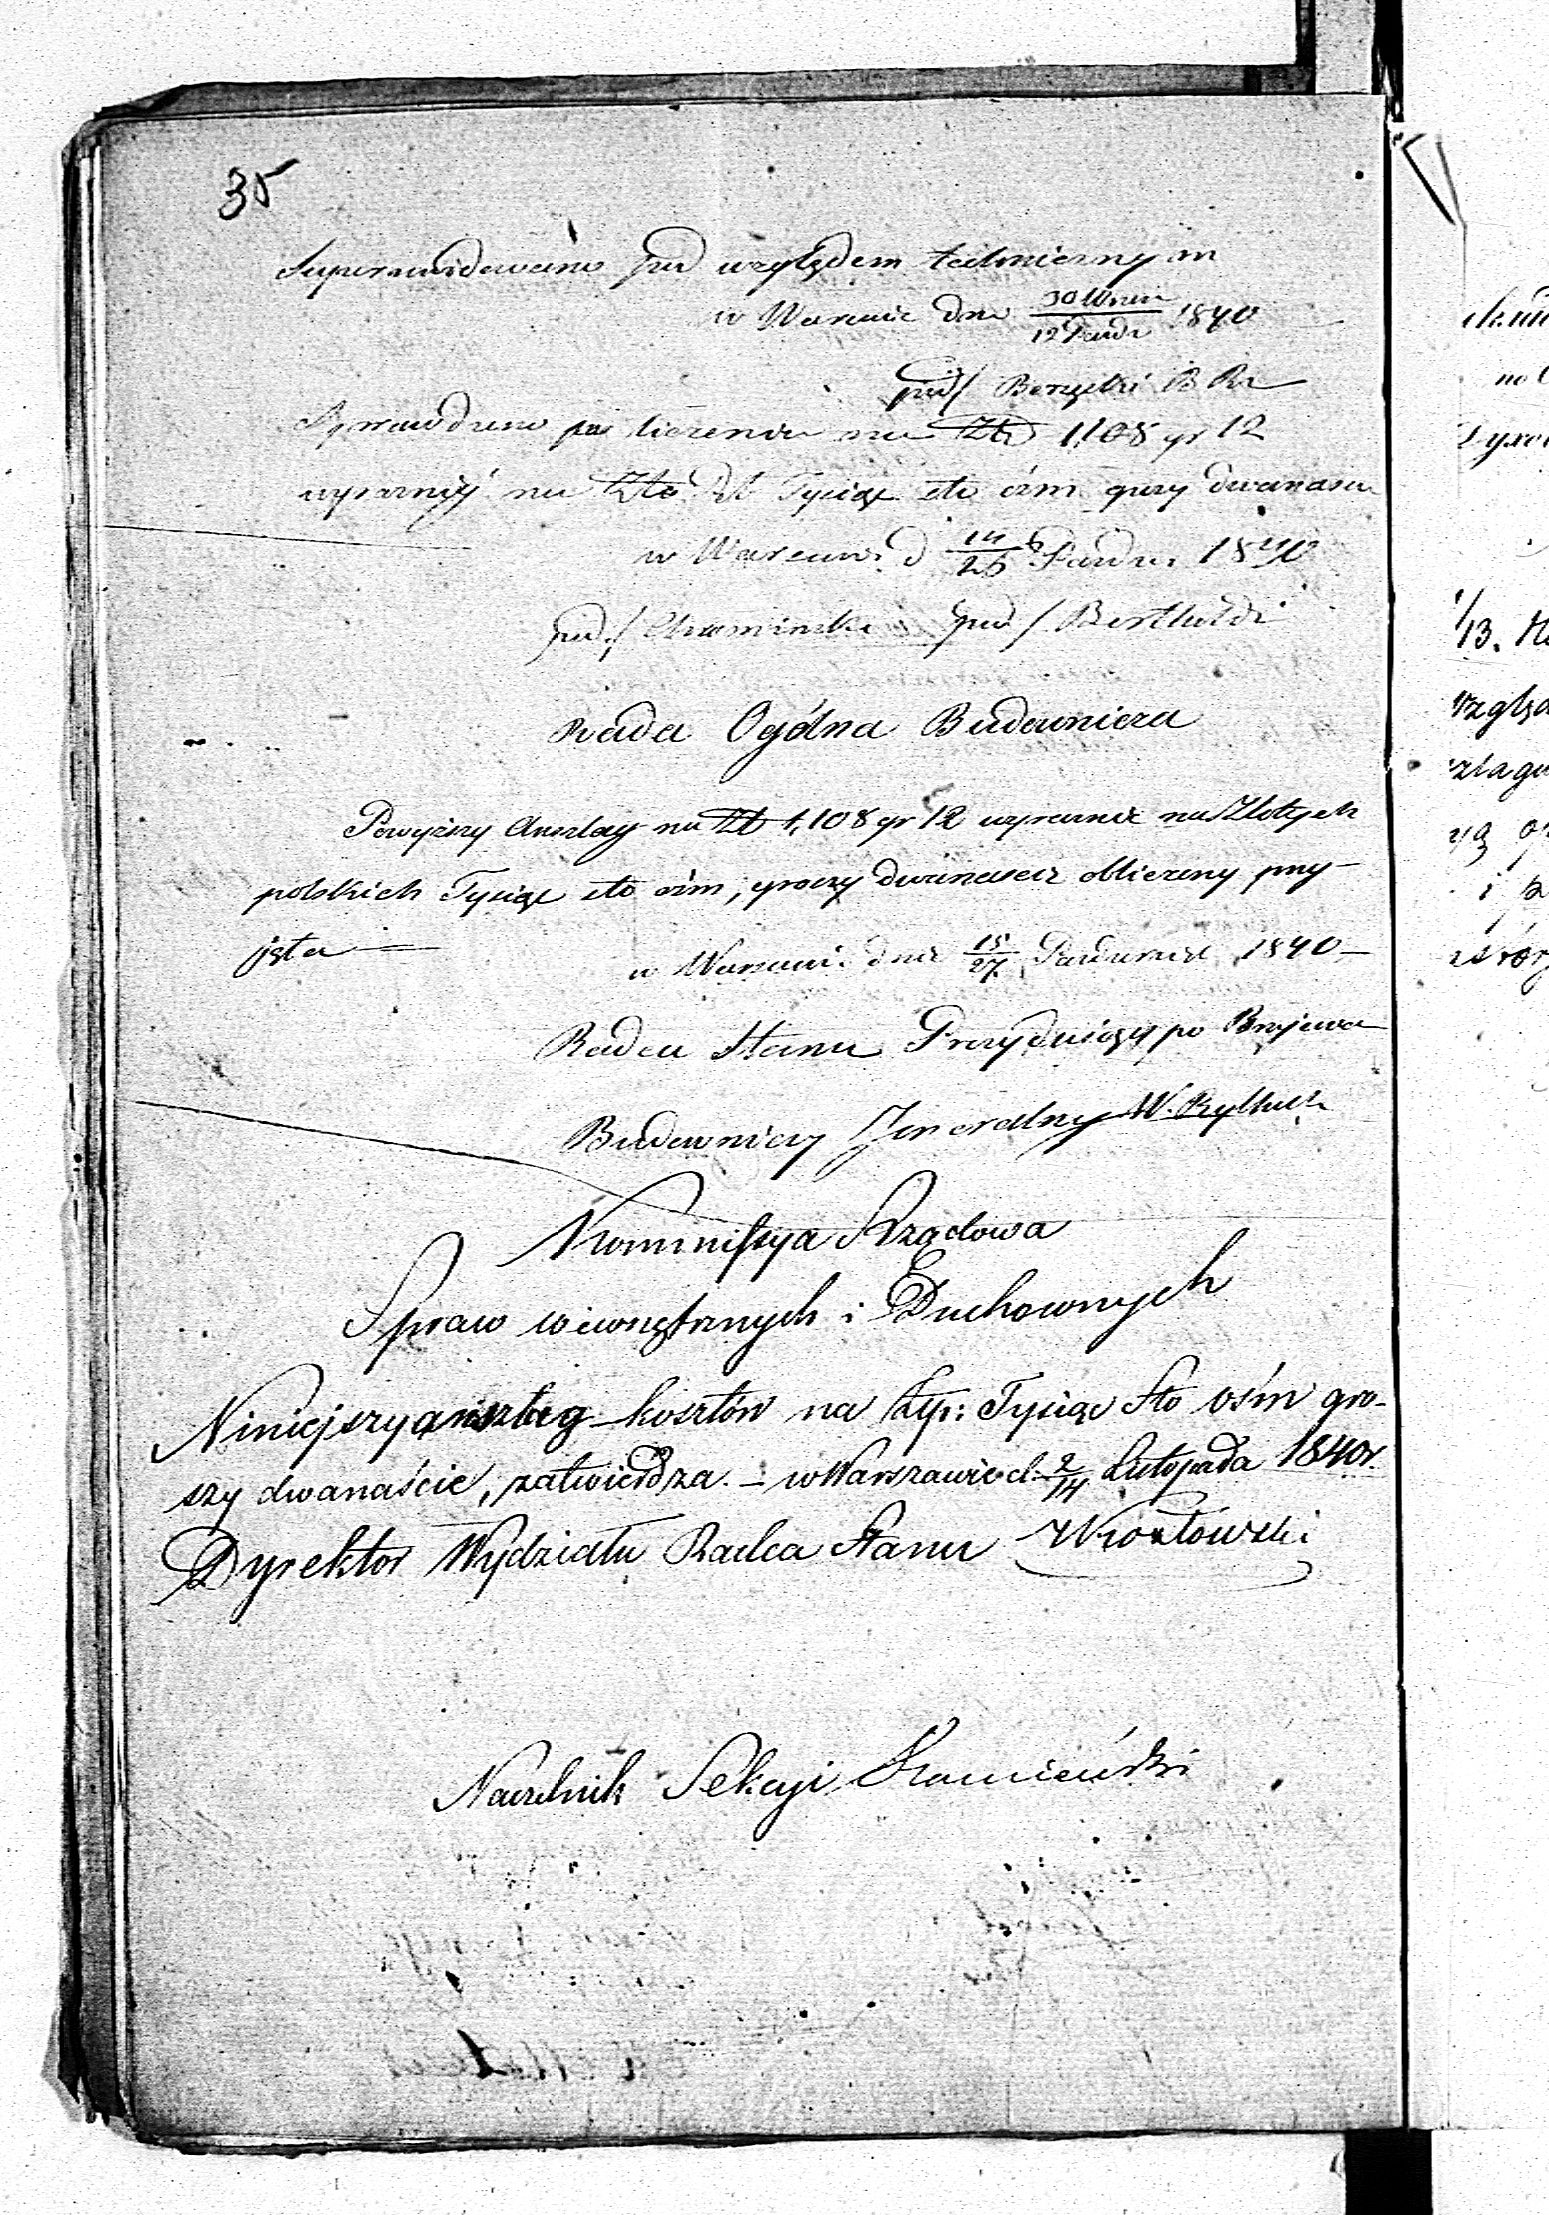 35
Superrewidowano pod względem technicznym
w Warszawie dnia 30 Wrześ/12 Paźdz 1840
pod/ Borzęcki B Rz
Sprawdzono pod liczeniem na Złp 1108 gr 12
wyraźniej na Złp Tysiąc sto ośm groszy dwanaście
w Warszawie d 14/26 Paździer 1840
pod/ pod/ Bertholdi
Rada Ogólna Budownicza
Powyższy Anszlag na Zł 1,108 gr 12 wyraźnie na Złotych
polskich Tysiąc sto ośm, groszy dwanaście obliczony przy-
jęła
w Warszawie dnia 15/27 Październik 1840 —
Radca Stanu Prezydujący
Budowniczy Jeneralny W. Rytkiel
Kommissya Rządowa
Spraw wewnętrznych i Duchownych
Niniejszy anszlag kosztów na złp: Tysiąc Sto ośm gro-
szy dwanaście, zatwierdza. – w Warszawie d. 2/14 Listopada 1840 r.
Dyrektor Wydziału Radca Stanu Kozłowski
Naczelnik Sekcyi Kamieński